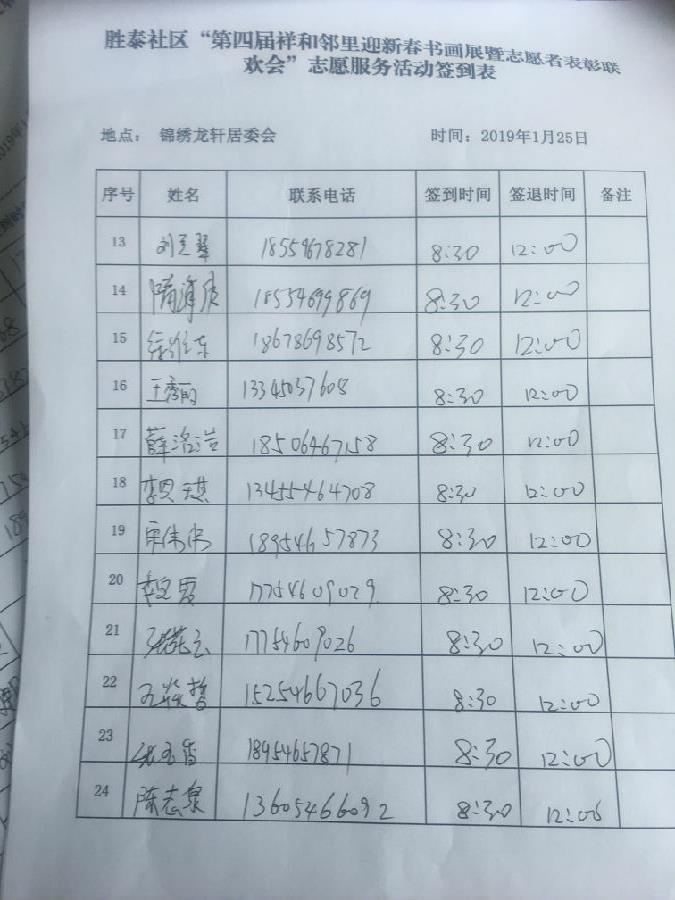 胜泰社区“第四届祥和邻里迎新春书画展暨志愿者表彰联
欢会”志愿服务活动签到表
地点： 锦绣龙轩居委会 时间：2019年1月25日
序号 姓名 联系电话 签到时间 签退时间 备注
13 18554678281 8:30 12:00
14 18554699869 8:30 12:00
15 18678698572 8:30 12:00
16 王秀丽 13345037608 8:30 12:00
17 薛洛浩 18506467158 8:30 12:00
18 13455464708 8:30 12:00
19 18954657873 8:30 12:00
20 17754609029 8:30 12:00
21 17754609026 8:30 12:00
22 15254667036 8:30 12:00
23 18954657871 8:30 12:00
24 陈志泉 13605466092 8:30 12:00